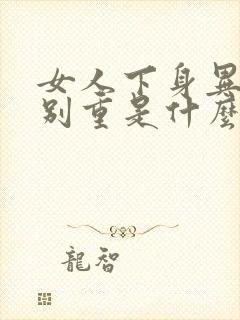 女人下身異
別重是什麼
龍智